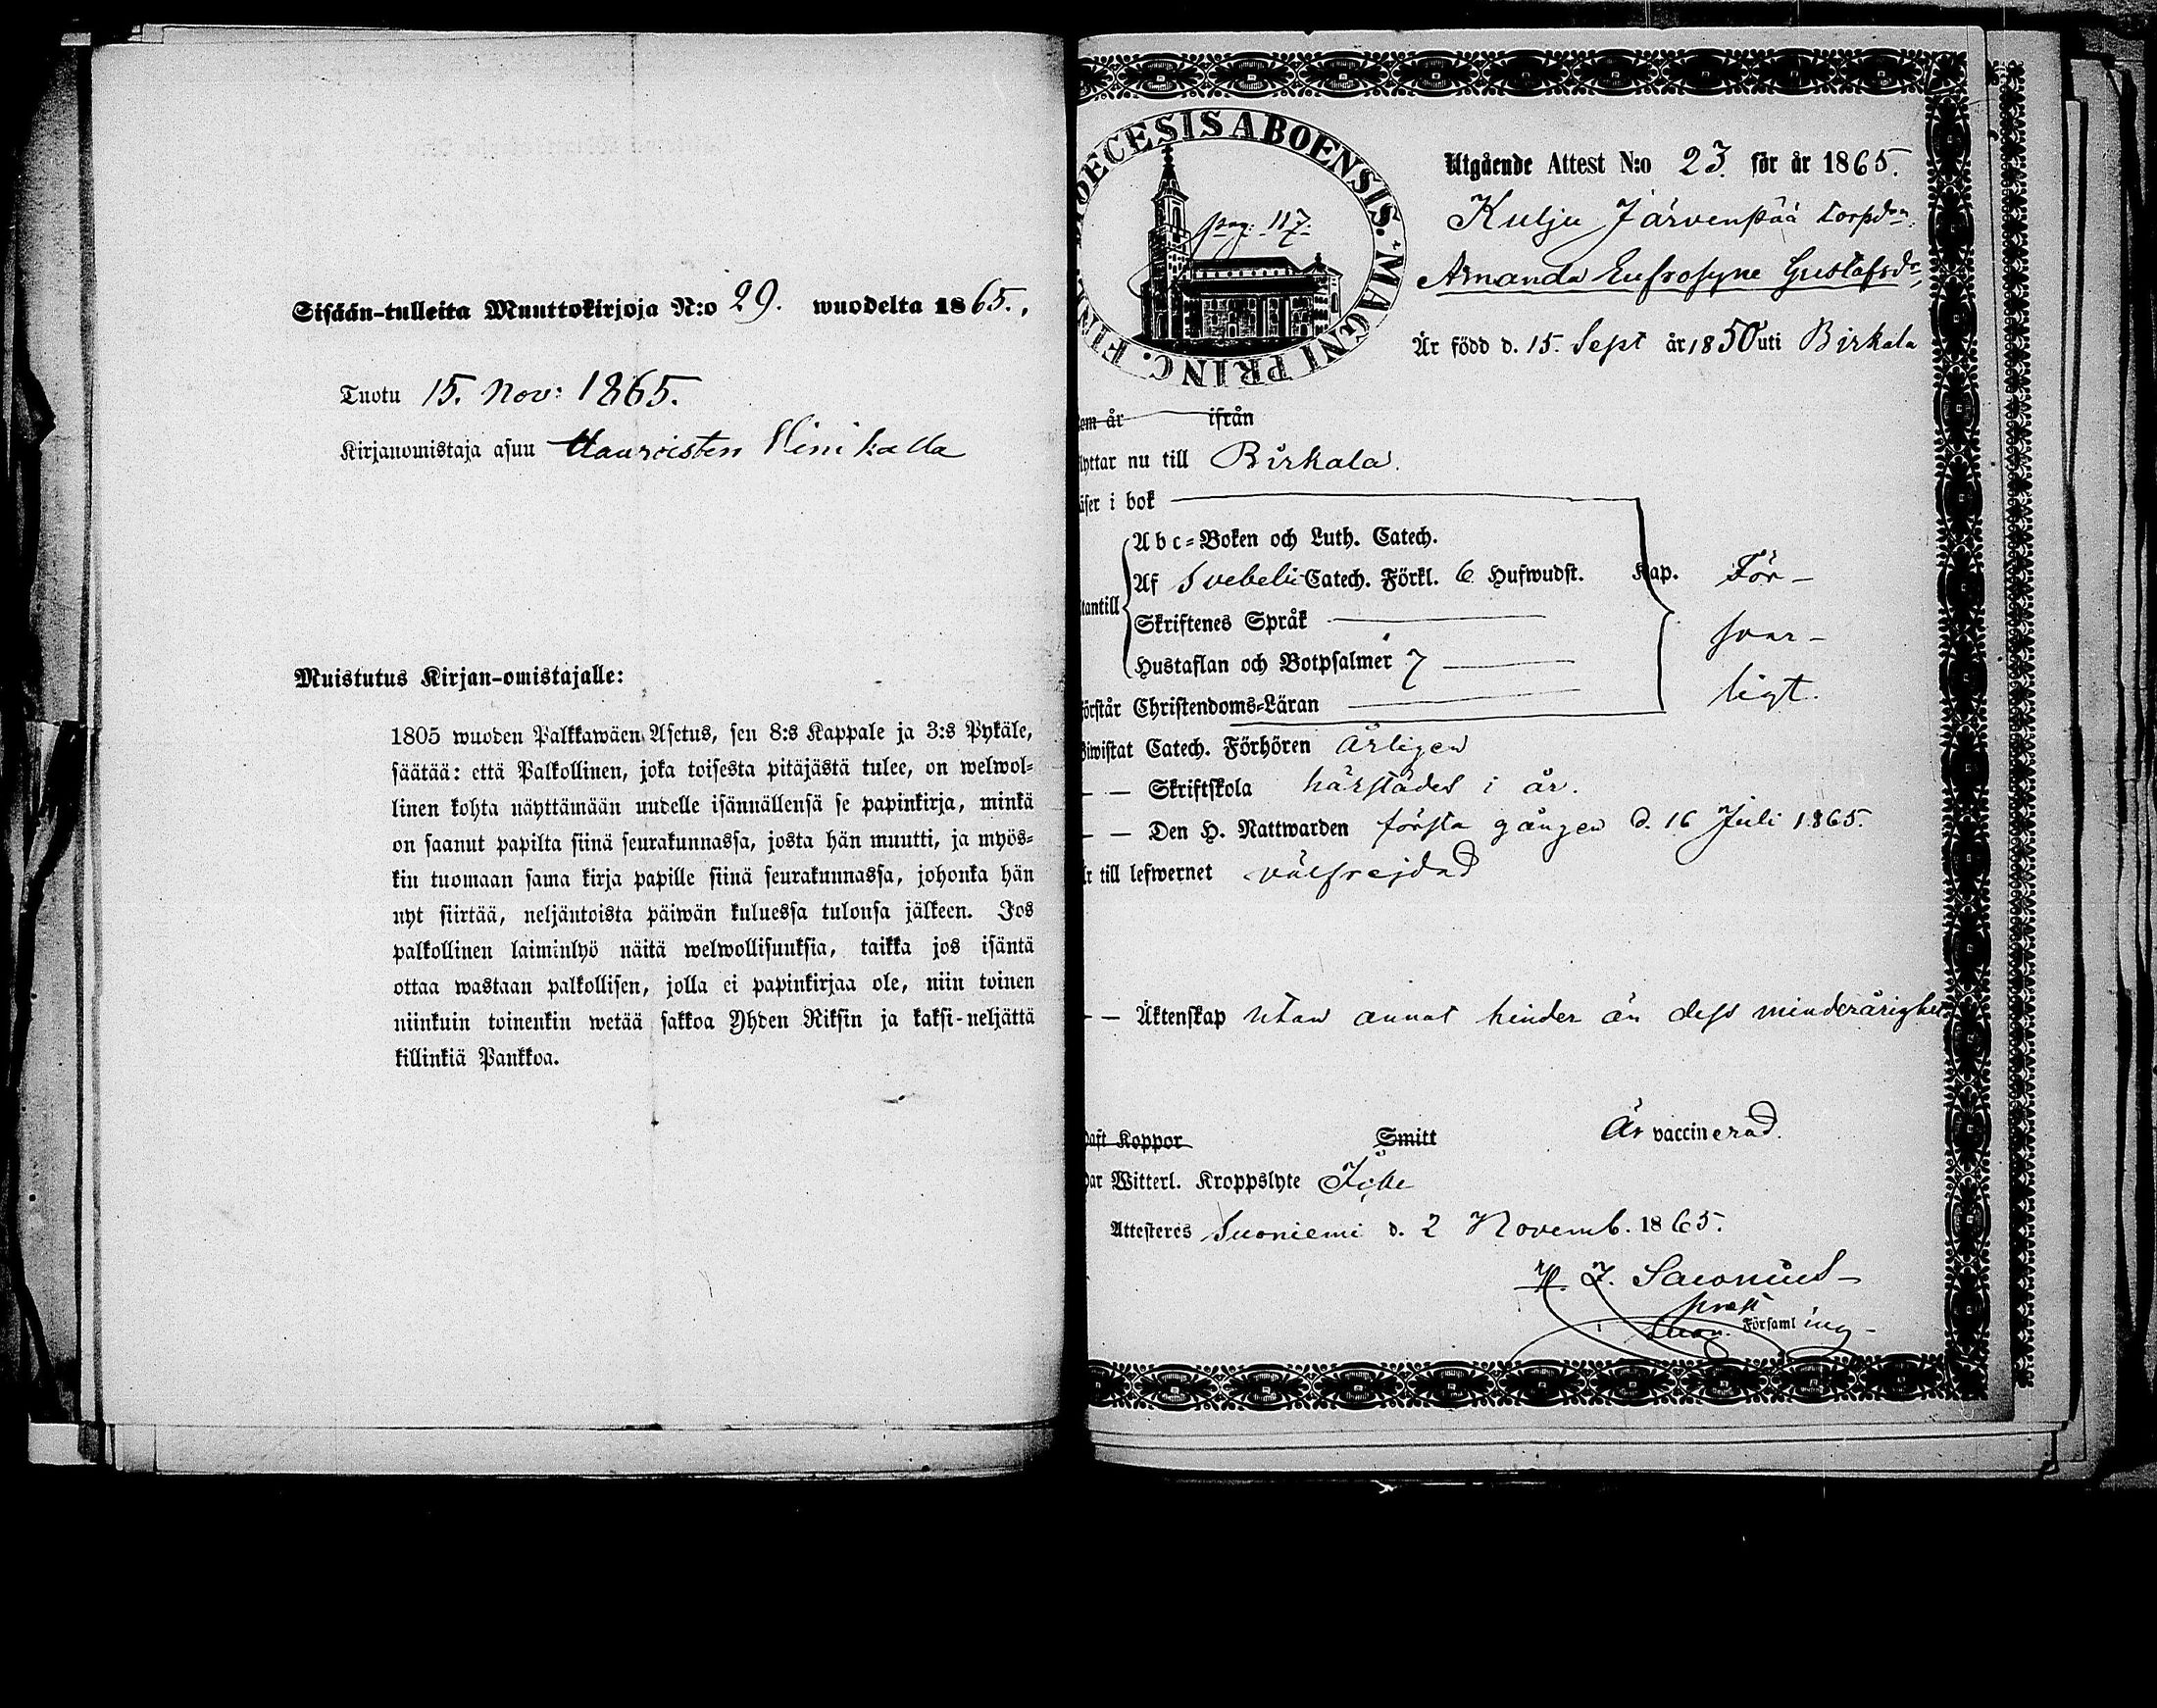 Sisään-tulleita Muuttokirjoja N:o 29. wuodelta 1865.,
Tuotu 15. Nov: 1865.
Kirjanomistaja asuu
Muistutus Kirjan-omistajalle:
1805 wuoden Palkkawäen Asetus, sen 8:s Kappale ja 3:s Pykäle,
säätää: että Palkollinen, joka toisesta pitäjästä tulee, on welwol-
linen kohta näyttämään uudelle isännällensä se papinkirja, minkä
on saanut papilta siinä seurakunnassa, josta hän muutti, ja myös-
kin tuomaan sama kirja papille siinä seurakunnassa, johonka hän
nyt siirtää, neljäntoista päiwän kuluessa tulonsa jälkeen. Jos
palkollinen laiminlyö näitä welwollisuuksia, taikka jos isäntä
ottaa wastaan palkollisen, jolla ei papinkirjaa ole, niin toinen
niinkuin toinenkin wetää sakkoa Yhden Riksin ja kaksi-neljättä
killinkiä Pankkoa.
DIOECESIS ABOENSIS. MAGNI PRINC. FIN
pag. 117.
Utgående Attest N:o 23. för år 1865.
Kulju Järvenpää torpdr.
Amanda Eufrosyne Gustafsdr
Är född d. 15. Sept år 1850 uti Birkala
em år ifrån
lyttar nu till Birkala.
äser i bok
Abc-Boken och Luth. Catech.
Af Svebelii Catech. Förkl. 6 Hufwudst. Kap. För-
tantill
Skriftenes Språk
svar-
Hustaflan och Botpsalmer 7
ligt.
förstår Christendoms-Läran
Biwistat Catech. Förhören årligen
— — Skriftskola härstädes i år.
— — Den H. Nattwarden första gången d. 16 Juli 1865.
r till lefwernet välfrejdad
— — Äktenskap utan annat hinder än dess minderårighet
haft Koppor Smitt Är vaccinerad.
har Witterl. Kroppslyte Icke
Attesteres Suoniemi d. 2 Novemb. 1865.
Saxonius
Församl ing